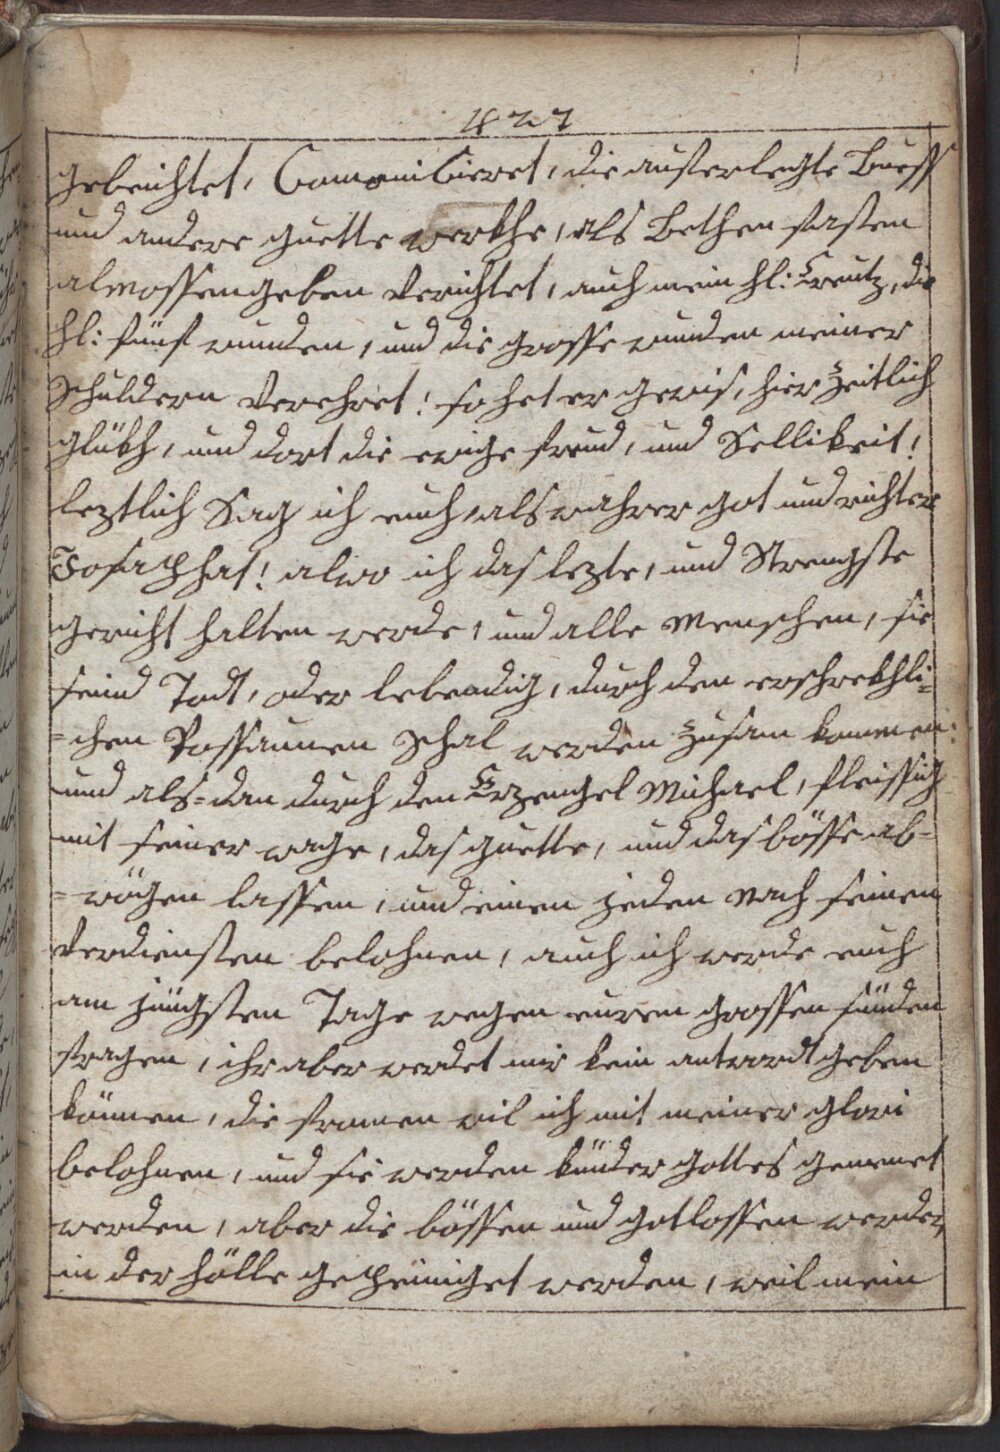 427
gebeichtet, Comunicieret, die auferlegte Buess
und andere guette werkhe, als Bethen fasten
almossengeben verichtet, auch mein hl: Creutz, die
hl: fünf wunden, und die grosse wunden meiner
schuldern verehret! so hat er gewis, hier zeitlich
glükh, und dort die ewige freud, und Sellikeit!
leztlich Sag ich euch, als wahrer got und richter
Josaphhat! alwo ich das lezte, und Strengste
gericht halten werde, und alle Menschen, sie
seind Todt, oder lebendig, durch den erschrekhli=
=chen Possaunen schal werden zusam kommen:
und als=dan durch den Erzengel Michael, fleissig
mit seiner wage, das guette, und das bösse ab=
=wögen lassen, und einen jeden nach seinen
verdiensten belohnen, auch ich werde euch
am jüngsten Tage wegen euren grossen sünden
fragen, ihr aber werdet mir kein antwordt geben
können, die fromen wil ich mit meiner glori
belohnen, und sie werden künder gottes genennet
werden, aber die bössen und gotlossen werden
in der hölle gepheiniget werden, weil mein